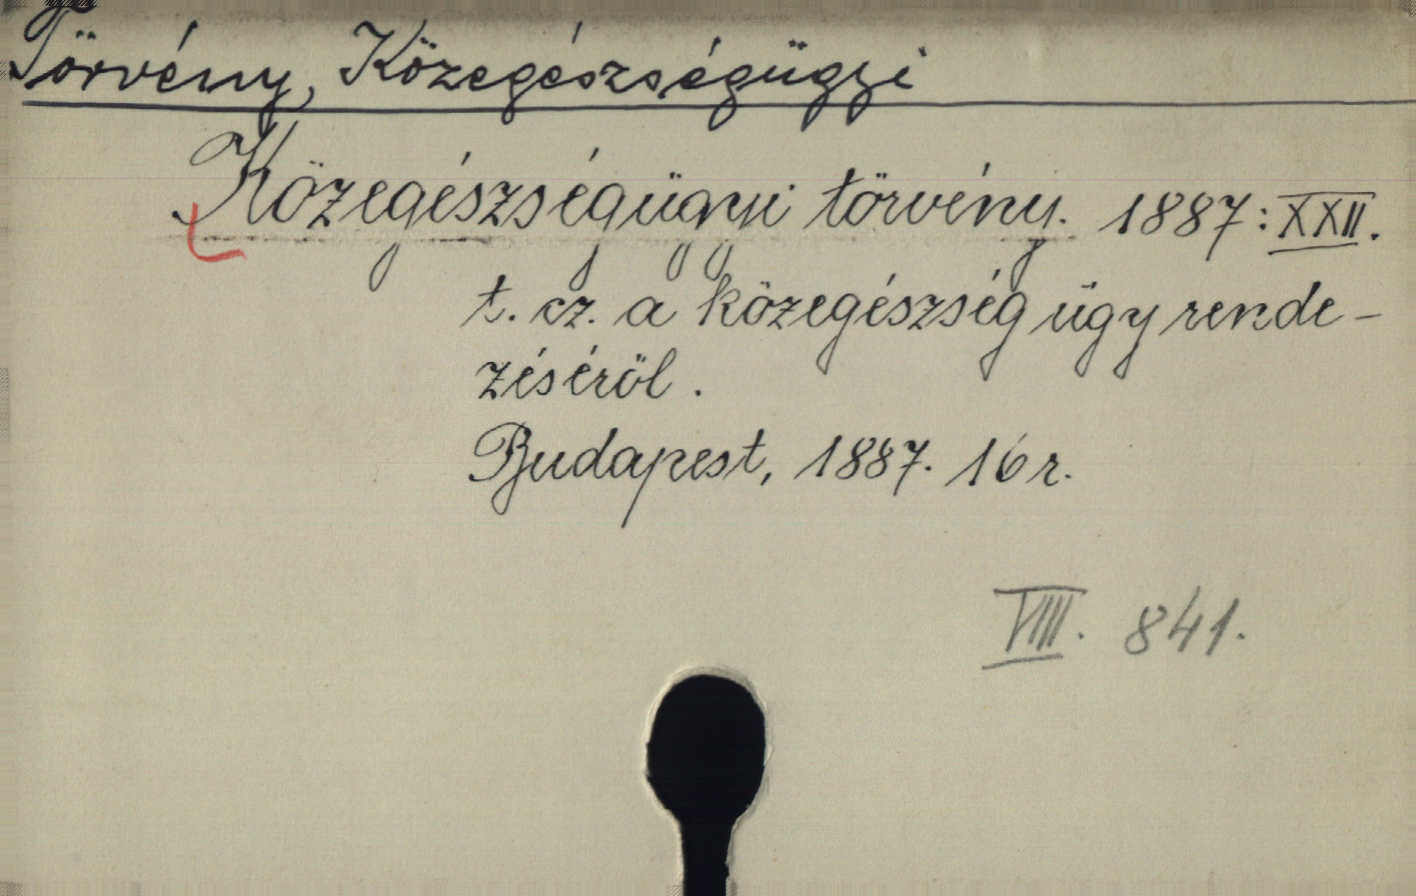 Törvény, Közegészségügyi
Közegészségügyi törvény. 1887: XXII.
t. cz. a közegészség ügy rende-
zéséröl.
Budapest, 1887. 16 r.
VIII. 841.